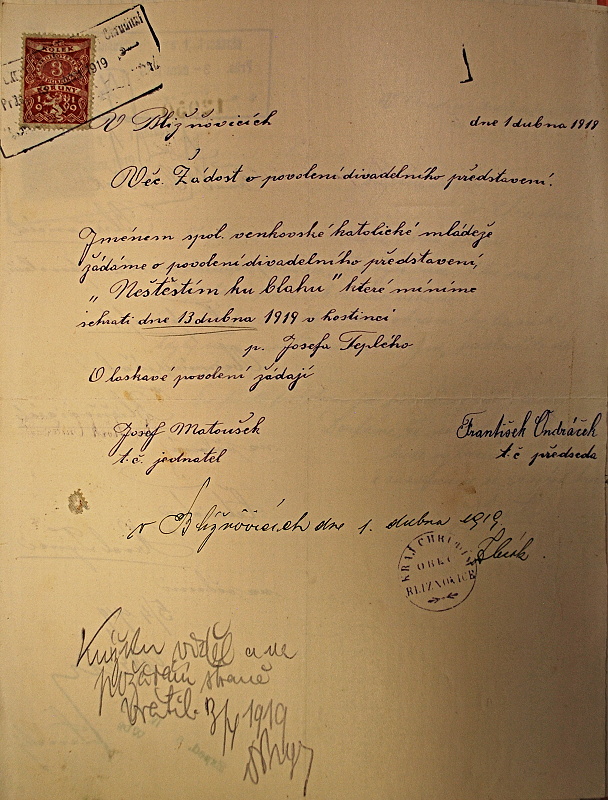 KOLEK
3
KORUNY
1919
V Blížňovicích dne 1 dubna 1919
Věc. Žádost o povolení divadelního představení.
Jménem spol. venkovské katolické mládeže
žádáme o povolení divadelního představení,
„Neštěstím ku blahu" které míníme
sehrati dne 13 dubna 1919 v hostinci
p. Josefa Teplého
O laskavé povolení žádají
Josef Matoušek František Ondráček
t.č. jednatel t.č předseda
v Blížňovicích dne 1. dubna 1919.
KRAJ CHRUDIM
OBEC
BLIZNOVICE
Knížku viděl a na
požádání straně
vrátil 3/4 1919